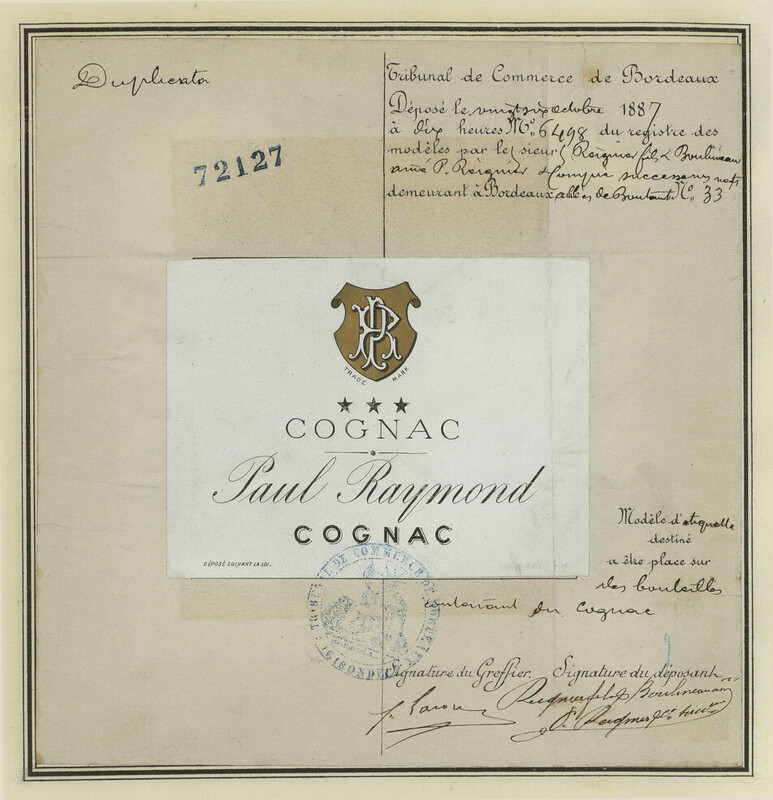 Duplicata
Tribunal de Commerce de Bordeaux
Déposé le vingt six octobre 1887
à dix heures No. 6498 du registre des
modèles par le(s) sieur(s) Reignier fils & Boulineau
P. Reignier & Compie successeurs
demeurant à Bordeaux allées de Boutaut No. 33
72127
PR
TRADE MARK
★★★
COGNAC
Paul Raymond
COGNAC
DÉPOSÉ SUIVANT LA LOI.
Modèle d'étiquette
destiné
a être place sur
des bouteilles
contenant du cognac
TRIBUNAL DE COMMERCE DE BORDEAUX
(GIRONDE)
Signature du Greffier. Signature du déposant
Reignier fils & Boulineau
P. Reignier & Co